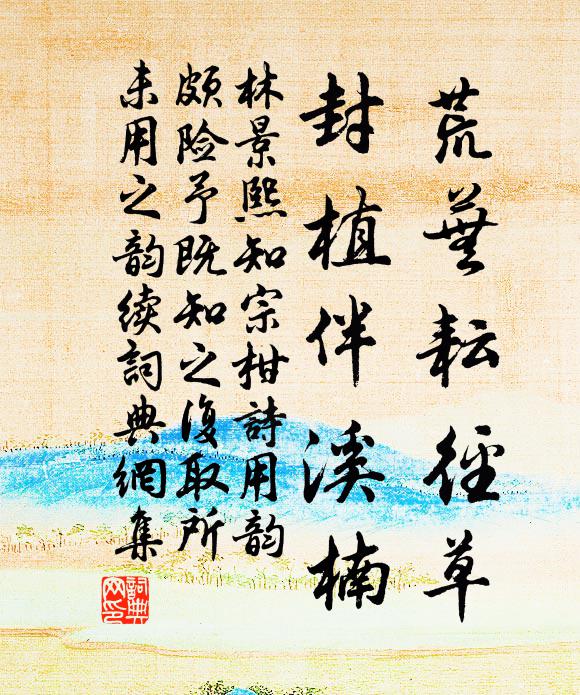 荒蕪耘徑草
封植伴溪楠
林景熙知宗柑詩用韵
頗险予既知之復取所
未用之韵續詞典網集
詞典网印